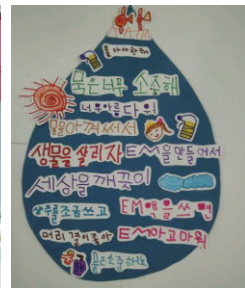 물은너무 소중해
너무아름다워
물을아껴써서
생물을살리자 EM을만들어서
세상을깨끗이
샴푸를조금쓰고 EM액을쓰면
머리결이좋아 EM아고마워
물은소중하니까